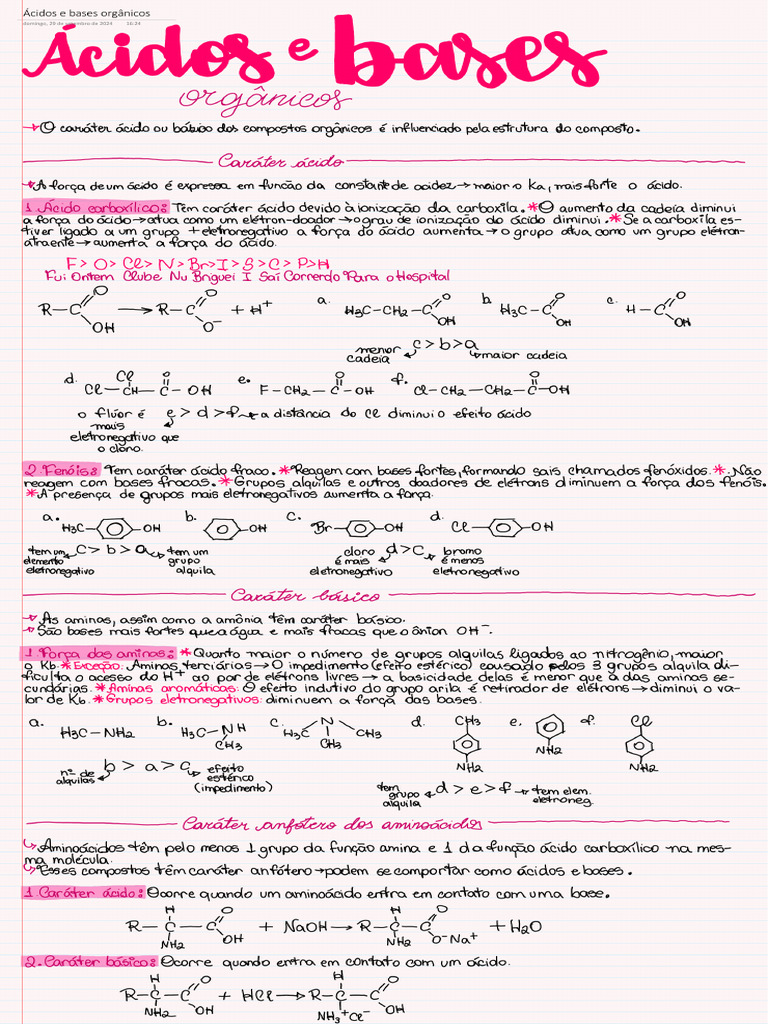 Ácidos e bases orgânicos
domingo, 29 de setembro de 2024 16:24
Ácidos e bases
orgânicos
→ O caráter ácido ou básico dos compostos orgânicos é influenciado pela estrutura do composto.
Caráter ácido
→ A força de um ácido é expressa em função da constante de acidez → maior o Ka, mais forte o ácido.
1 Ácido carboxílico: Têm caráter ácido devido à ionização da carboxila. * O aumento da cadeia diminui
a força do ácido → atua como um elétron-doador → o grau de ionização do ácido diminui. * Se a carboxila es-
tiver ligado a um grupo + eletronegativo a força do ácido aumenta → o grupo atua como um grupo elétron-
atraente → aumenta a força do ácido.
F > O > Cl > N > Br > I > S > C > P > H
Fui Ontem Clube Nu Briguei I Saí Correndo Para o Hospital
R-C O OH → R-C O O⁻ + H⁺ a. H3C-CH2-C O OH b. H3C-C O OH c. H-C O OH
menor cadeia c > b > a maior cadeia
d. Cl Cl-CH-C-OH O e. F-CH2-C-OH O f. Cl-CH2-CH2-C-OH O
o flúor é e > d > f → a distância do Cl diminui o efeito ácido
mais
eletronegativo que
o cloro.
2 Fenóis: Tem caráter ácido fraco. * Reagem com bases fortes, formando sais chamados fenóxidos. * Não
reagem com bases fracas. * Grupos alquilas e outros doadores de elétrons diminuem a força dos fenóis.
* A presença de grupos mais eletronegativos aumenta a força.
a. H3C OH b. OH c. Br OH d. Cl OH
tem um elemento eletronegativo c > b > a tem um grupo alquila cloro é mais eletronegativo d > c bromo é menos eletronegativo
Caráter básico
→ As aminas, assim como a amônia têm caráter básico.
→ São bases mais fortes que a água e mais fracas que o ânion OH⁻.
1 Força das aminas: * Quanto maior o número de grupos alquilas ligados ao nitrogênio, maior
o Kb. * Exceção: Aminas terciárias → O impedimento (efeito estérico) causado pelos 3 grupos alquila di-
ficulta o acesso do H⁺ ao par de elétrons livres → a basicidade delas é menor que a das aminas se-
cundárias. * Aminas aromáticas: O efeito indutivo do grupo arila é retirador de elétrons → diminui o va-
lor de Kb. * Grupos eletronegativos: diminuem a força das bases.
a. H3C-NH2 b. H3C-NH CH3 c. H3C N CH3 CH3 d. CH3 NH2 e. NH2 f. Cl NH2
nº de alquilas b > a > c efeito estérico (impedimento)
tem grupo alquila d > e > f → tem elem. eletroneg.
Caráter anfótero dos aminoácidos
↳ Aminoácidos têm pelo menos 1 grupo da função amina e 1 da função ácido carboxílico na mes-
ma molécula.
↳ Esses compostos têm caráter anfótero → podem se comportar como ácidos e bases.
1 Caráter ácido: Ocorre quando um aminoácido entra em contato com uma base.
R-C-C H NH2 O OH + NaOH → R-C-C H NH2 O O⁻Na⁺ + H2O
2. Caráter básico: Ocorre quando entra em contato com um ácido.
R-C-C H NH2 O OH + HCl → R-C-C H NH3⁺Cl⁻ O OH